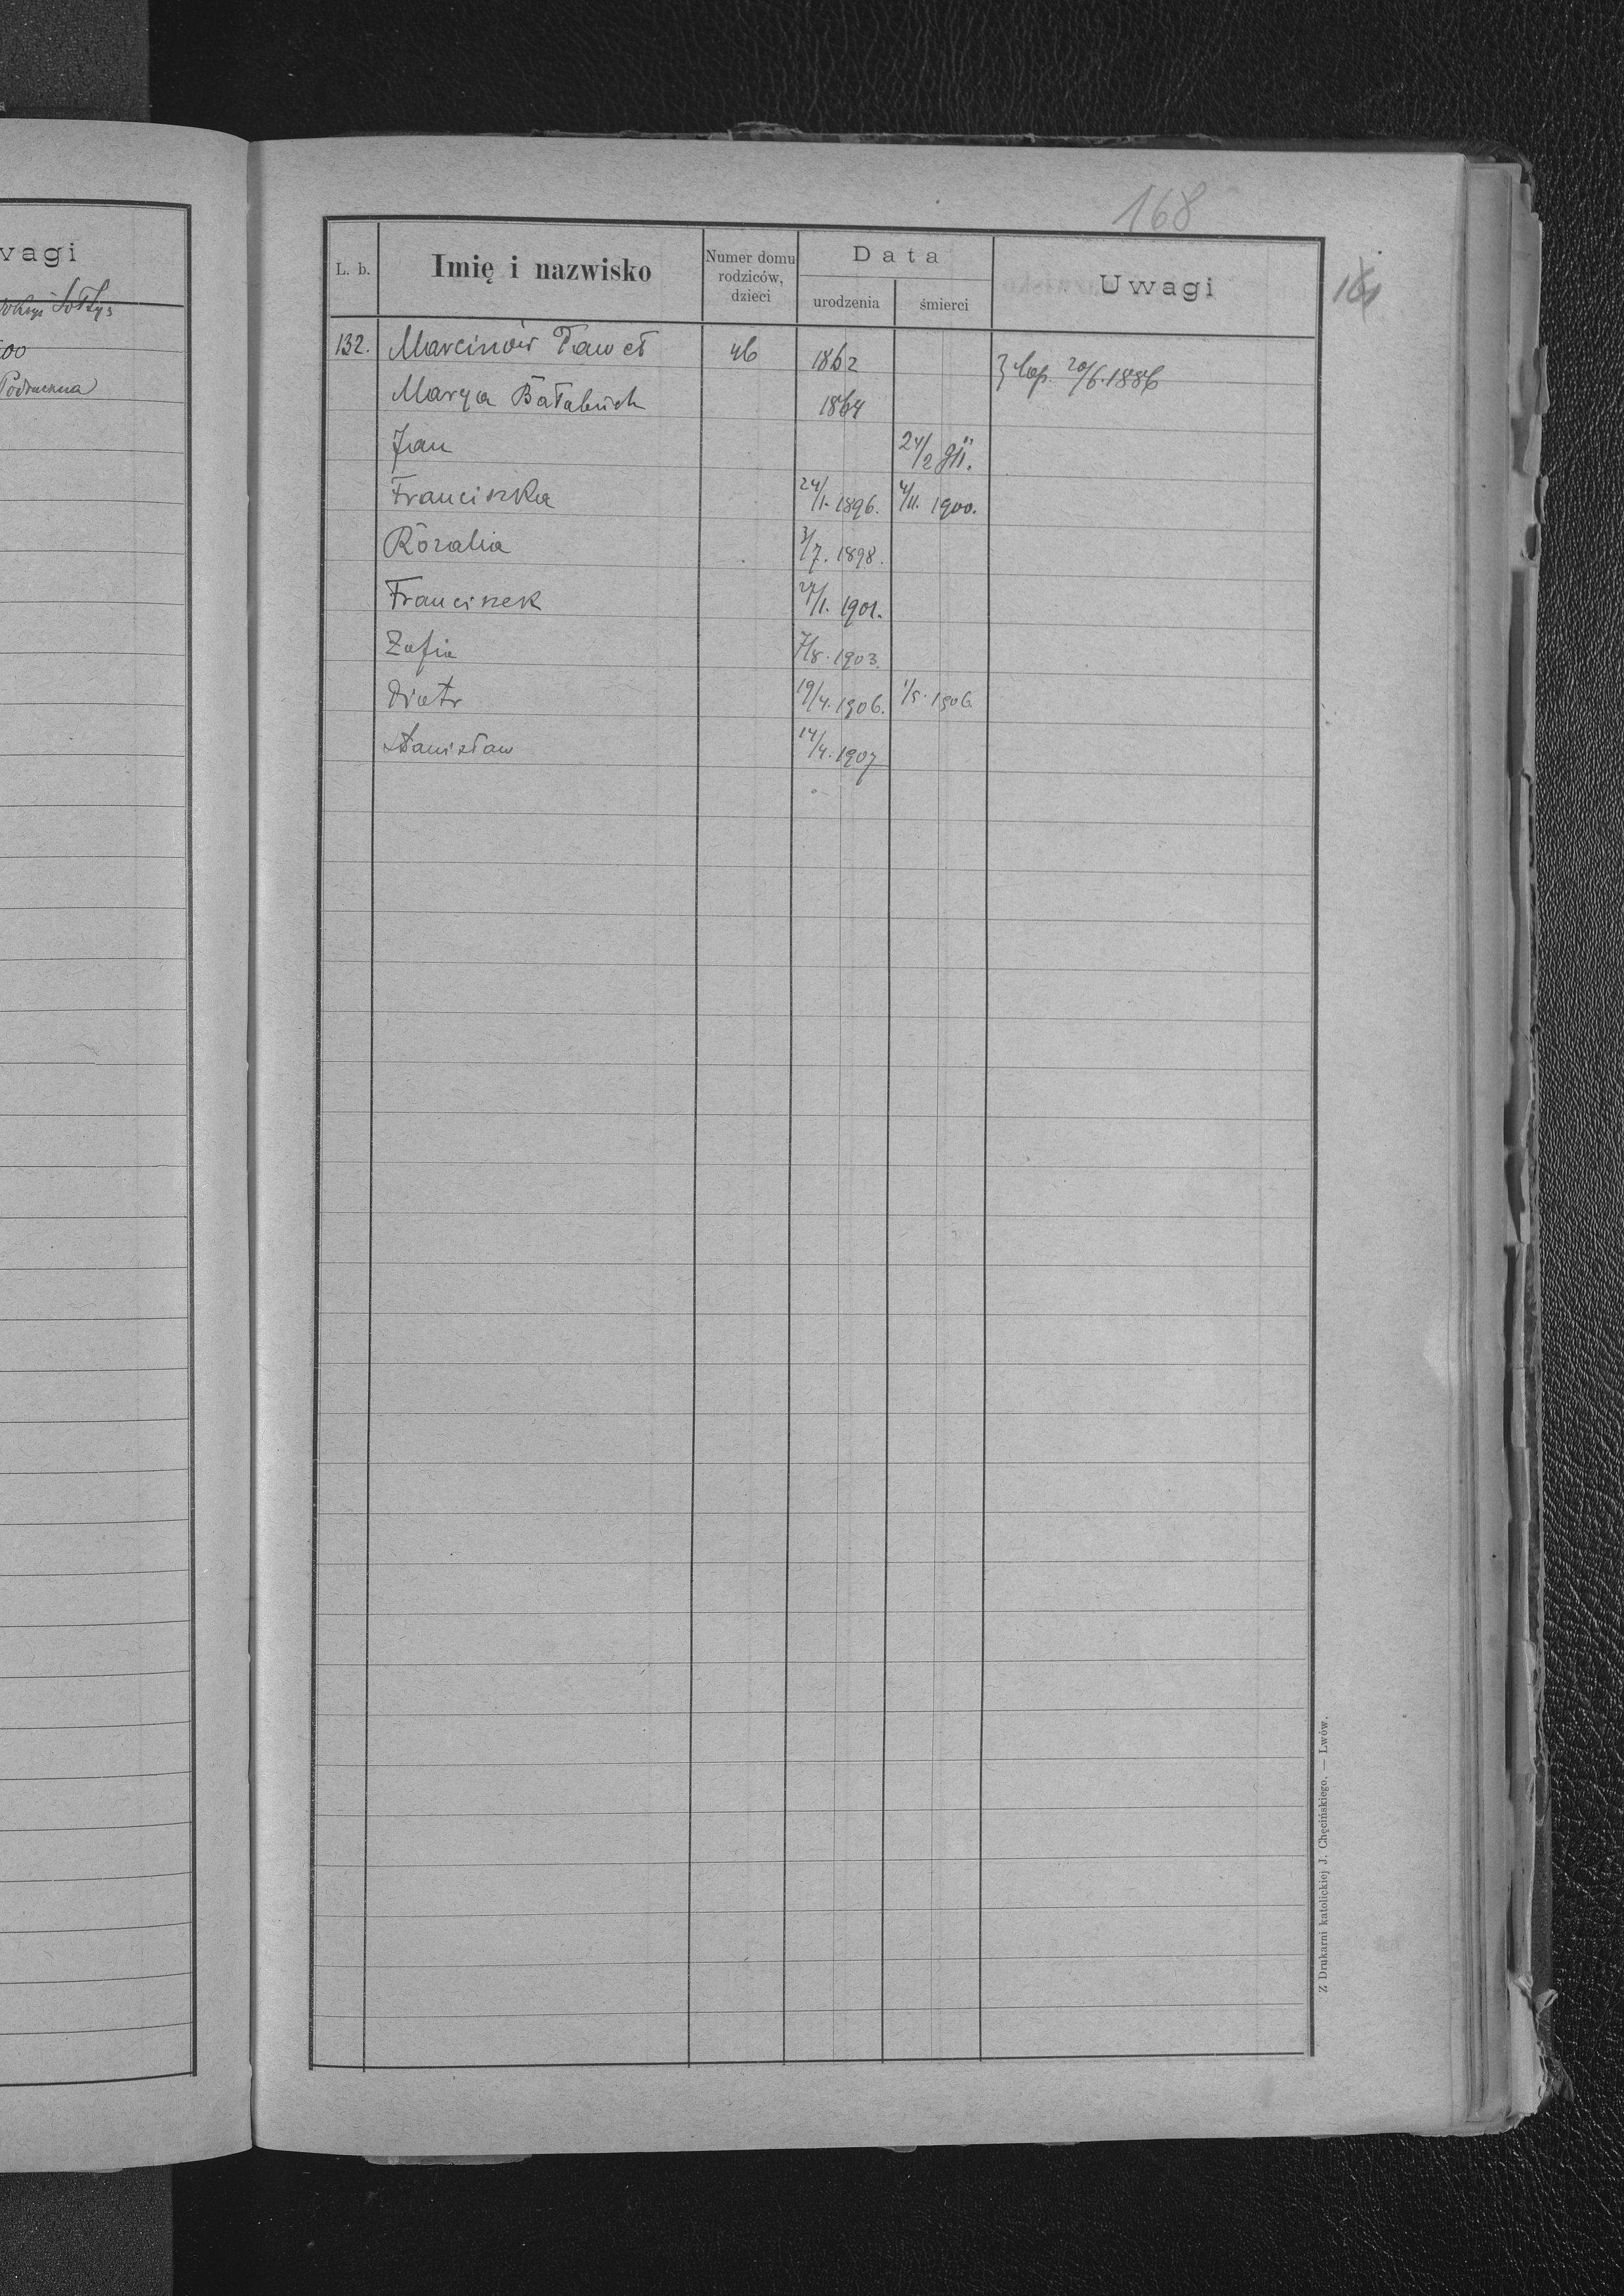 wagi
Sołtys
00
Podruczna
168
161
L. b.
Imię i nazwisko
Numer domu rodziców, dzieci
Data
urodzenia
śmierci
Uwagi
132. Marcinów Paweł 46 1862 } cop. 20/6. 1886
Marya Bałabuch 1864
Jan 24/2 911.
Franciszka 24/1. 1896. 4/11. 1900.
Rózalia 3/7. 1898.
Franciszek 27/1. 1901.
Zofia 7/8. 1903.
Piotr 19/4. 1906. 1/5. 1906
Stanisław 14/4. 1907
Z Drukarni katolickiej J. Chęcińskiego. — Lwów.